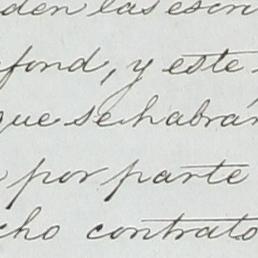 den las escri
fond, y este
que se habrán
por parte
cho contrato